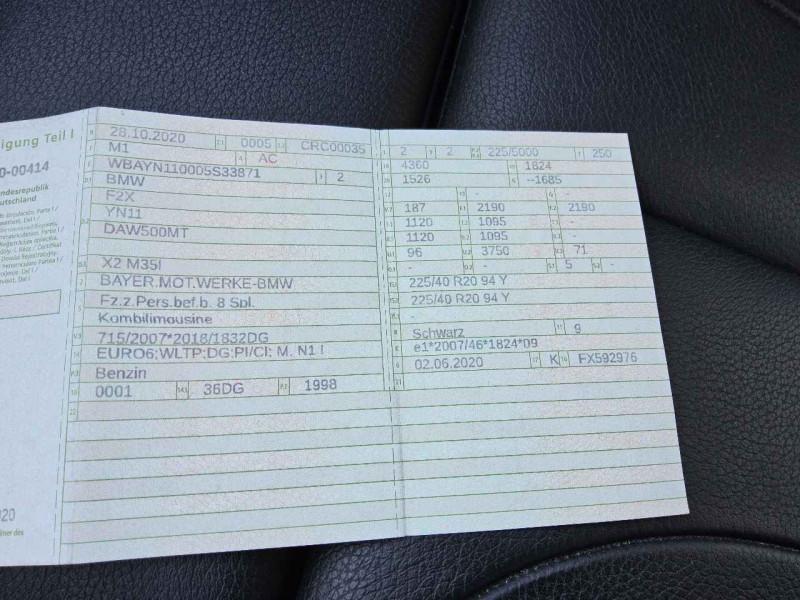 igung Teil I
0-00414
ndesrepublik
utschland
28.10.2020 0005 CRC00035
M1 AC
WBAYN110005S33871 2
BMW
F2X
YN11
DAW500MT
X2 M35I
BAYER.MOT.WERKE-BMW
Fz.z.Pers.bef.b. 8 Spl.
Kombilimousine
715/2007*2018/1832DG
EURO6;WLTP;DG;PI/CI; M, N1 I
Benzin
0001 36DG 1998
22
2 2 225/5000 250
4360 1824
1526 --1685
- - -
187 2190 2190
1120 1095 -
1120 1095 -
96 3750 71
- - 5 -
225/40 R20 94 Y
225/40 R20 94 Y
-
Schwarz 9
e1*2007/46*1824*09
02.06.2020 K FX592976
21
020